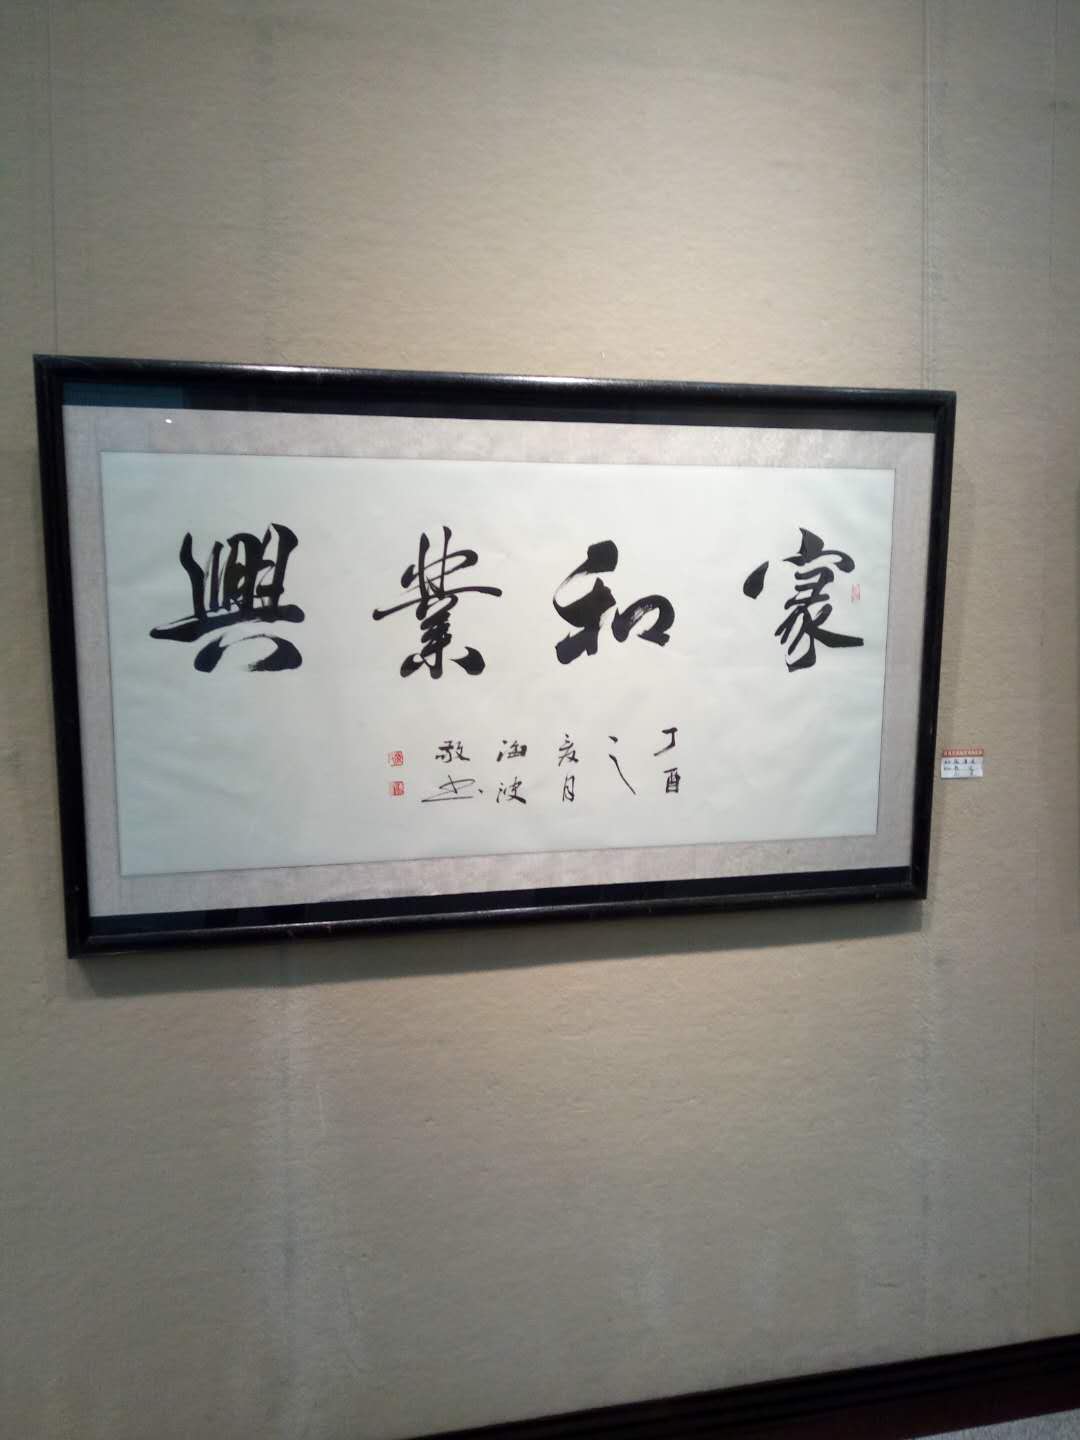 家和業興
丁酉
之
夏月
海波
敬书